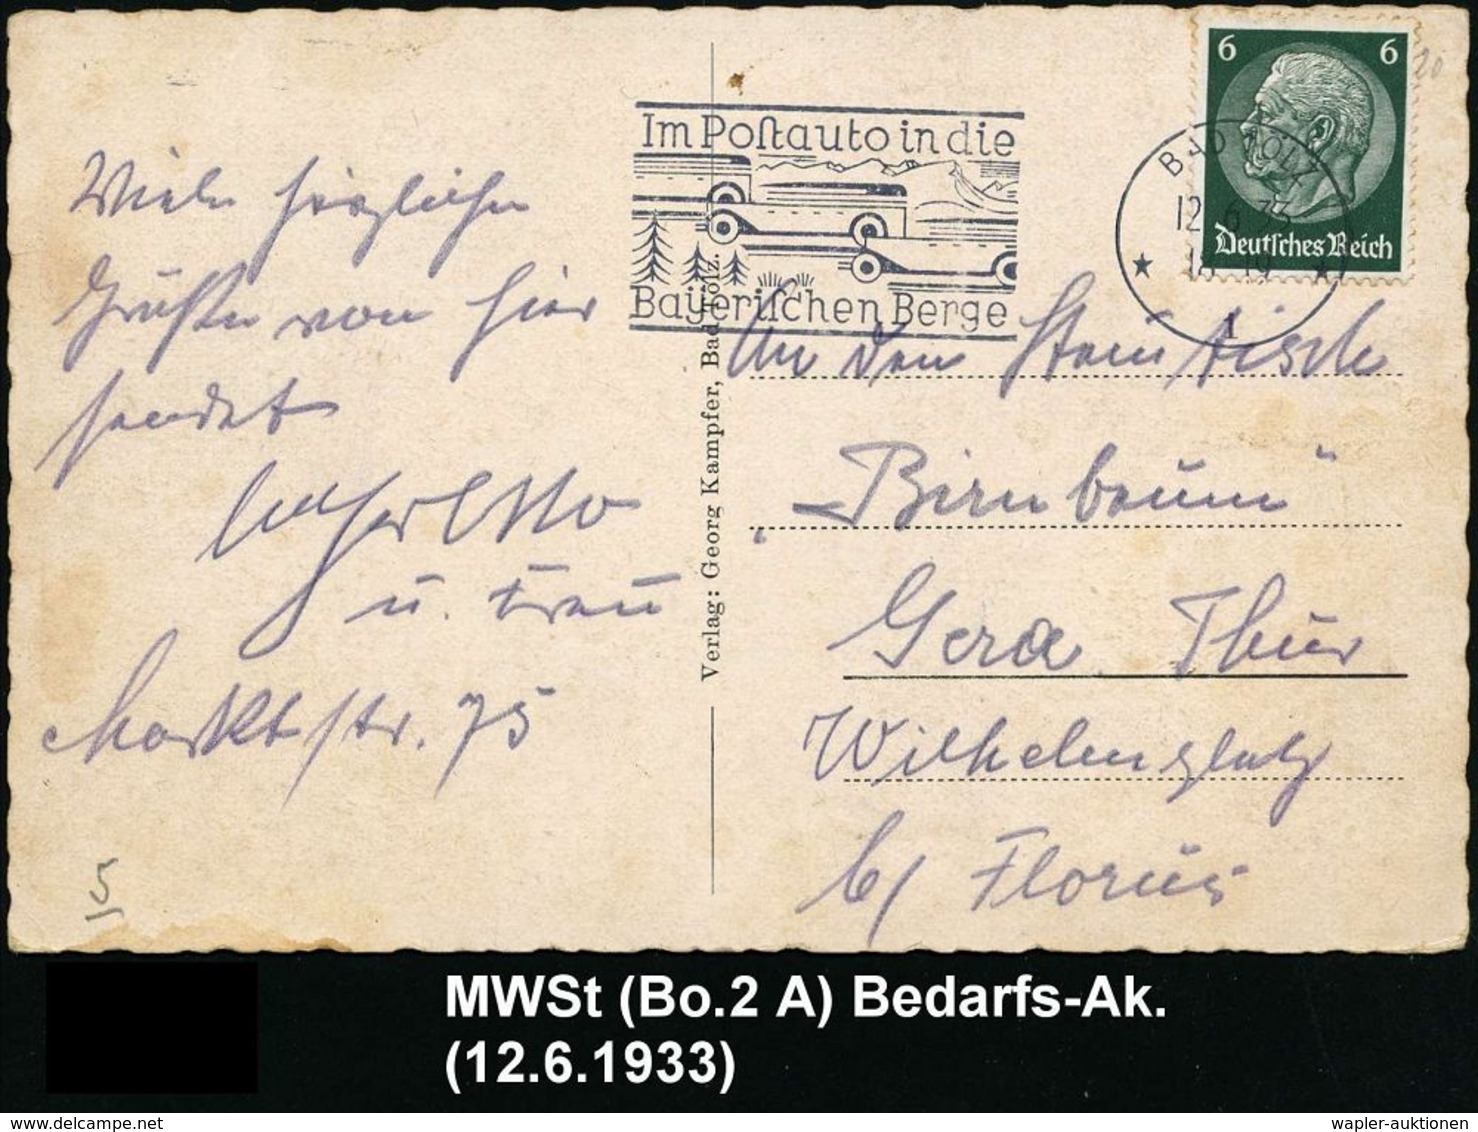 Viele herzliche
Grüße von hier
sendet
Otto
u. Frau
Marktstr. 75
5
Im Postauto in die
Bayerischen Berge
BAD TÖLZ
12.6.33
18-19
1
6 6
Deutsches Reich
20
Verlag: Georg Kampfer, Bad Tölz.
An den Stamtisch
„Birnbaum“
Gera Thür
Wilhelmsplatz
b/ Florus
MWSt (Bo.2 A) Bedarfs-Ak.
(12.6.1933)
www.delcampe.net
wapler-auktionen